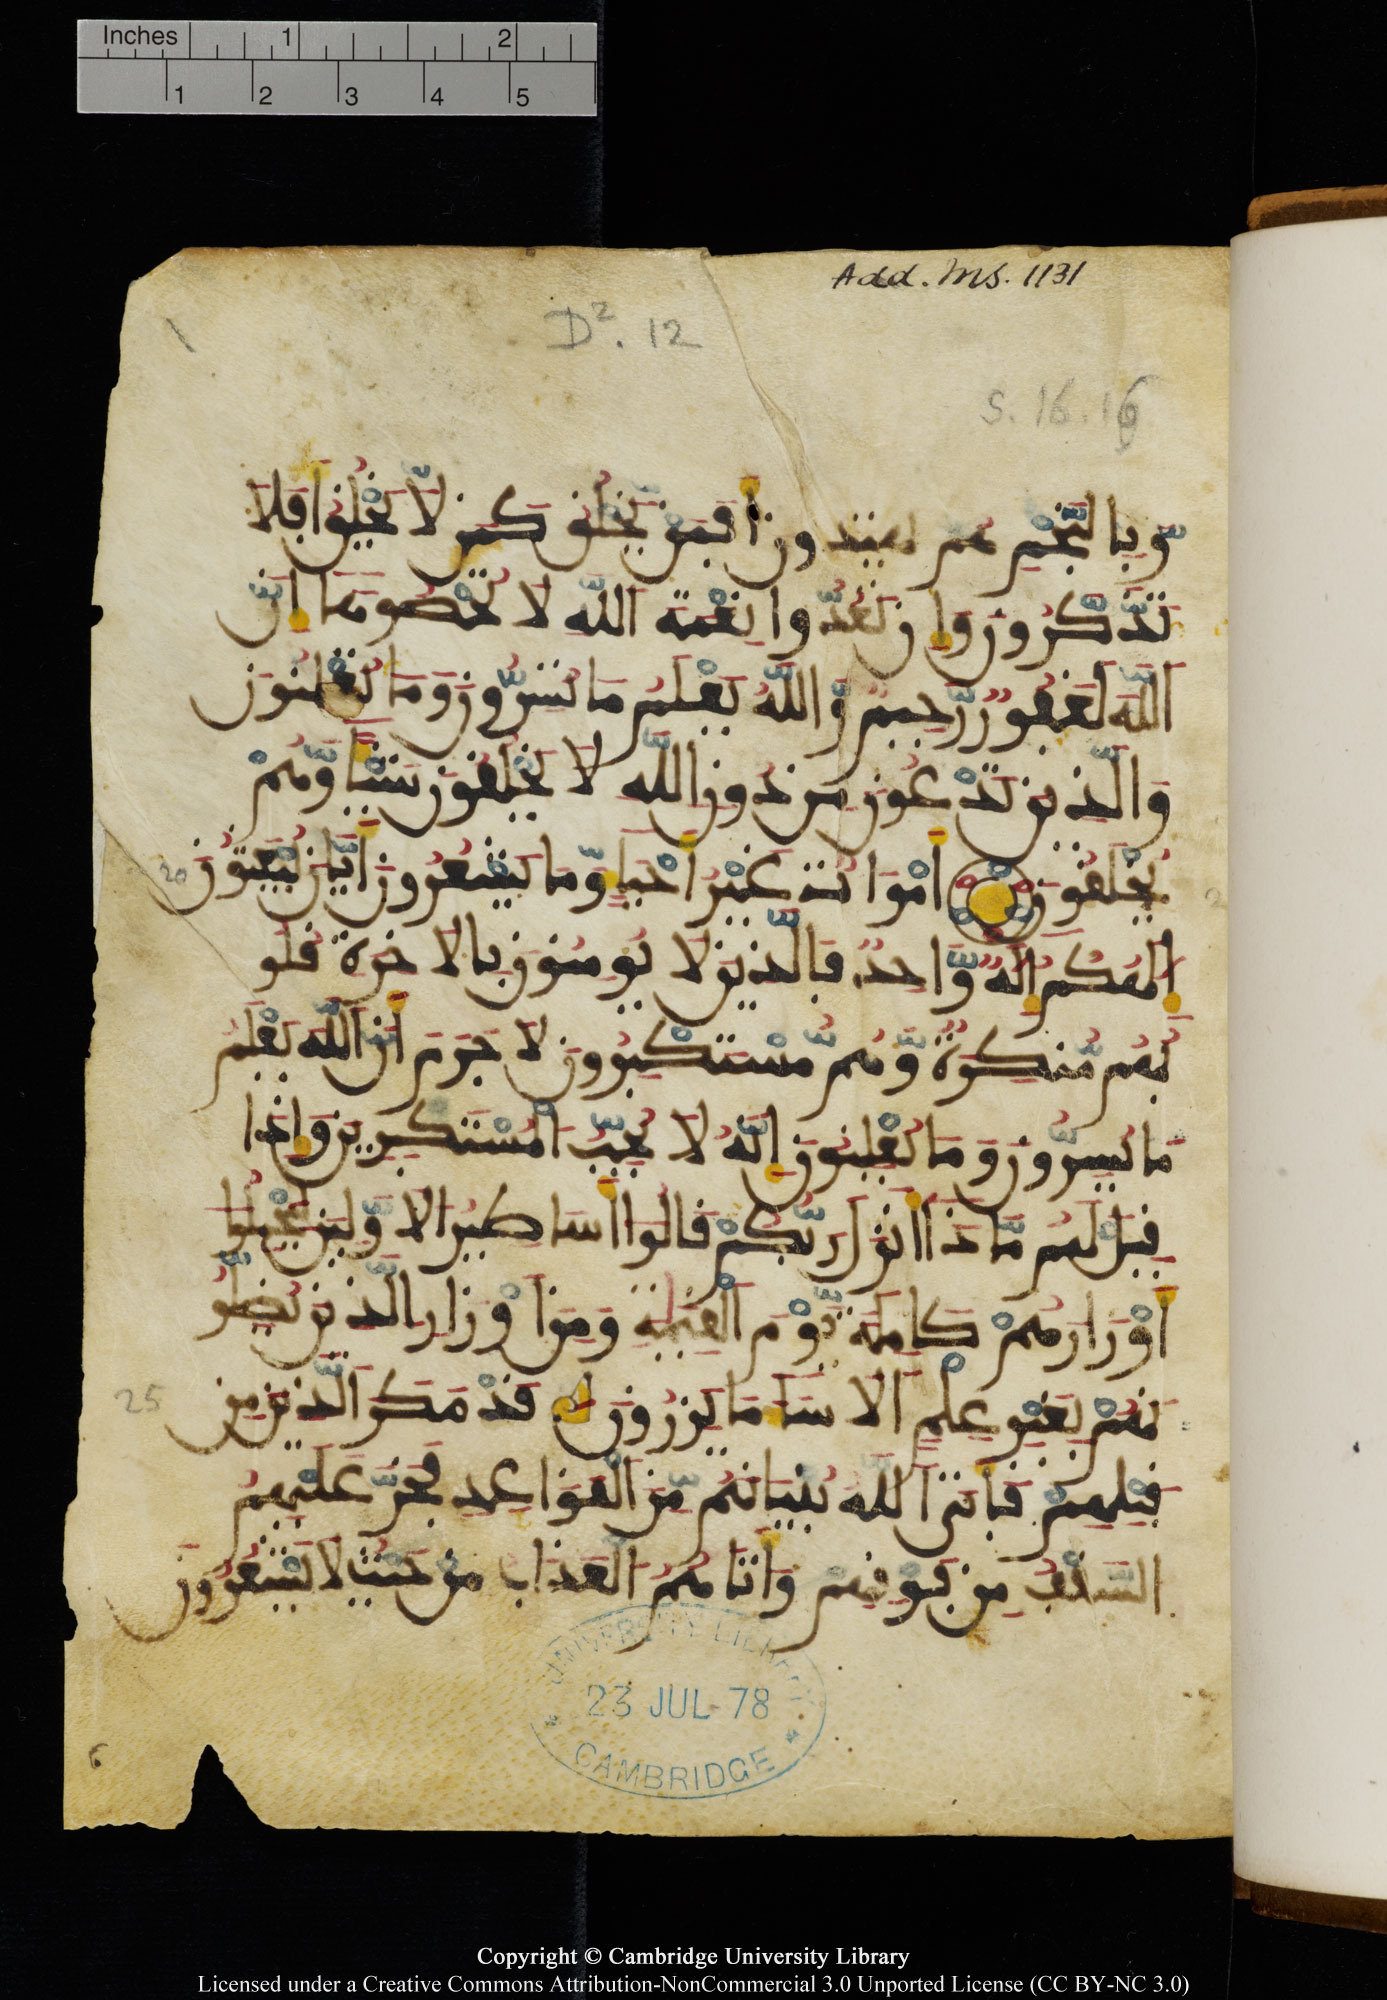 Inches 1 2
1 2 3 4 5
Add. Ms. 1131
D². 12
S. 16. 16
وَبِالنَّجْمِ هُمْ يَهْتَدُونَ أَفَمَنْ يَخْلُقُ كَمَن لَّا يَخْلُقُ أَفَلَا
تَذَّكَّرُونَ وَإِن تَعُدُّوا نِعْمَةَ اللَّهِ لَا تُحْصُوهَا إِنَّ
اللَّهَ لَغَفُورٌ رَّحِيمٌ وَاللَّهُ يَعْلَمُ مَا تُسِرُّونَ وَمَا تُعْلِنُونَ
وَالَّذِينَ تَدْعُونَ مِن دُونِ اللَّهِ لَا يَخْلُقُونَ شَيْئًا وَّهُمْ
20
يُخْلَقُونَ أَمْوَاتٌ غَيْرُ أَحْيَاءٍ وَّمَا يَشْعُرُونَ أَيَّانَ يُبْعَثُونَ
إِلَٰهُكُمْ إِلَٰهٌ وَّاحِدٌ فَالَّذِينَ لَا يُومِنُونَ بِالْآخِرَةِ قُلُو
بُهُم مُّنكِرَةٌ وَّهُم مُّسْتَكْبِرُونَ لَا جَرَمَ أَنَّ اللَّهَ يَعْلَمُ
مَا يُسِرُّونَ وَمَا يُعْلِنُونَ إِنَّهُ لَا يُحِبُّ الْمُسْتَكْبِرِينَ وَإِذَا
قِيلَ لَهُم مَّاذَا أَنزَلَ رَبُّكُمْ قَالُوا أَسَاطِيرُ الْأَوَّلِينَ لِيَحْمِلُوا
أَوْزَارَهُمْ كَامِلَةً يَوْمَ الْقِيَٰمَةِ وَمِنْ أَوْزَارِ الَّذِينَ يُضِلُّو
25
نَهُم بِغَيْرِ عِلْمٍ أَلَا سَاءَ مَا يَزِرُونَ قَدْ مَكَرَ الَّذِينَ مِن
قَبْلِهِمْ فَأَتَى اللَّهُ بُنْيَانَهُم مِّنَ الْقَوَاعِدِ فَخَرَّ عَلَيْهِمُ
السَّقْفُ مِن فَوْقِهِمْ وَأَتَاهُمُ الْعَذَابُ مِنْ حَيْثُ لَا يَشْعُرُونَ
UNIVERSITY LIBRARY
23 JUL 78
CAMBRIDGE
Copyright © Cambridge University Library
Licensed under a Creative Commons Attribution-NonCommercial 3.0 Unported License (CC BY-NC 3.0)